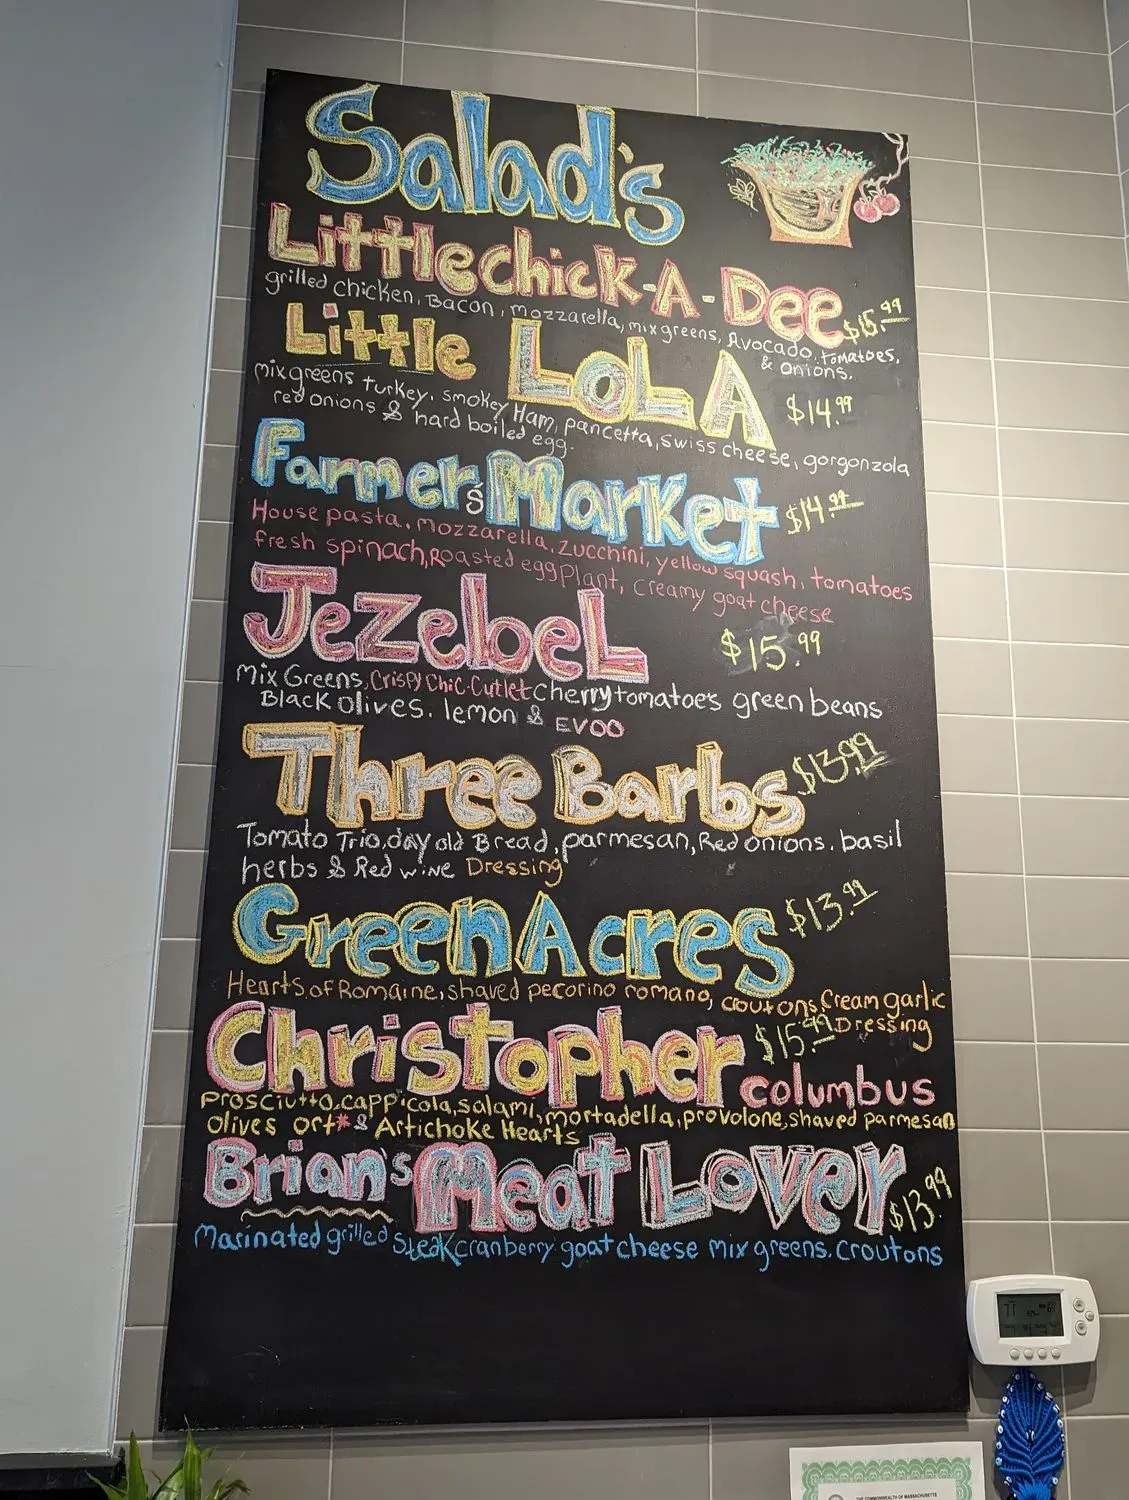 Salad's
Littlechick-A-Dee $15.99
grilled chicken, Bacon, mozzarella, mixgreens, Avocado, tomatoes,
& onions.
Little LoLA $14.99
mixgreens turkey, smokey Ham, pancetta, swiss cheese, gorgonzola
red onions & hard boiled egg.
Farmers Market $14.99
House pasta, mozzarella, zucchini, yellow squash, tomatoes
fresh spinach, Roasted eggplant, creamy goat cheese
JezebeL $15.99
Mix Greens, Crispy Chic. Cutlet cherry tomatoes green beans
Black olives. lemon & EVOO
Three Barbs $13.99
Tomato Trio, day old Bread, parmesan, Red onions. basil
herbs & Red wine Dressing
Green Acres $13.99
Hearts of Romaine, shaved pecorino romano, croutons, Cream garlic
Dressing
Christopher $15.99
columbus
prosciutto, cappicola, salami, mortadella, provolone, shaved parmesan
olives & Artichoke Hearts
Brian's Meat Lover $13.99
Marinated grilled steak cranberry goat cheese mix greens. croutons
77
THE COMMONWEALTH OF MASSACHUSETTS